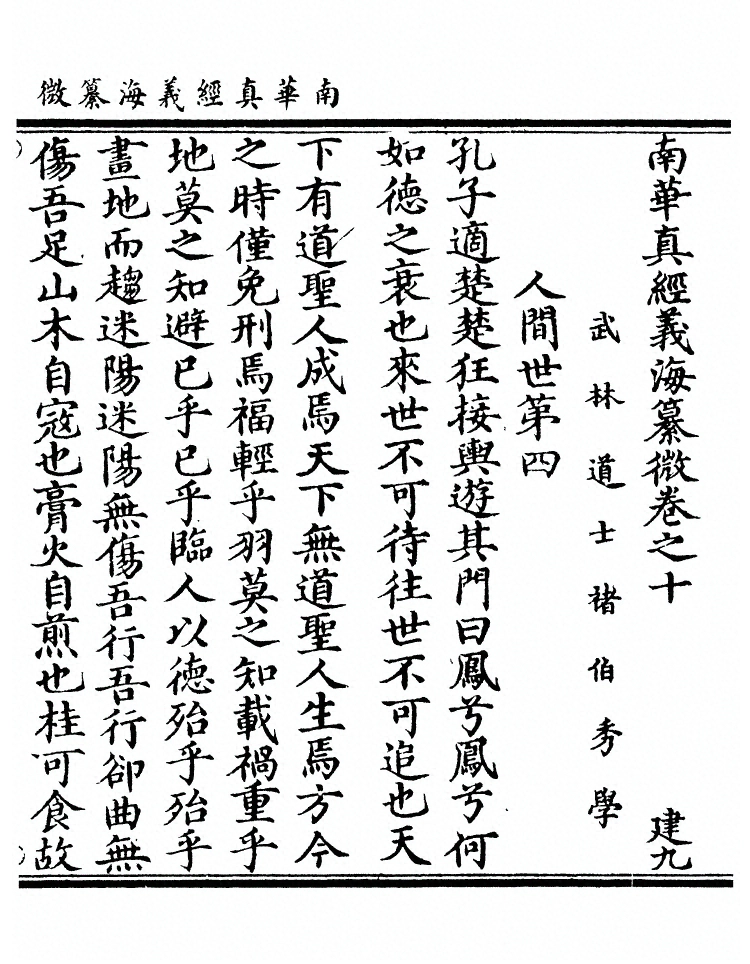 南華真經義海纂微
南華真經義海纂微卷之十 建九
武林道士褚伯秀學
人間世第四
孔子適楚楚狂接輿遊其門曰鳳兮鳳兮何
如德之衰也來世不可待往世不可追也天
下有道聖人成焉天下無道聖人生焉方今
之時僅免刑焉福輕乎羽莫之知載禍重乎
地莫之知避已乎已乎臨人以德殆乎殆乎
畫地而趨迷陽迷陽無傷吾行吾行郤曲無
傷吾足山木自寇也膏火自煎也桂可食故